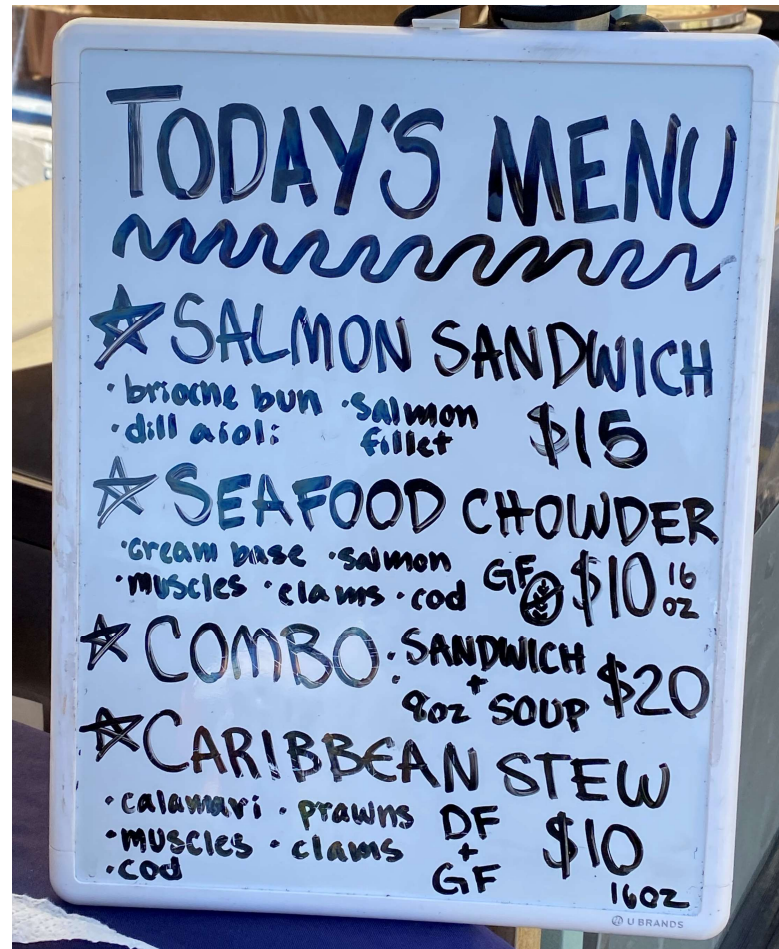 TODAY'S MENU
SALMON SANDWICH
• brioche bun • salmon
• dill aioli fillet $15
SEAFOOD CHOWDER
• cream base • salmon
• muscles • clams • cod GF $10 16 oz
COMBO • SANDWICH
+
• 8oz SOUP $20
CARIBBEAN STEW
• calamari • prawns DF
• muscles • clams + $10
• cod GF 16oz
U BRANDS